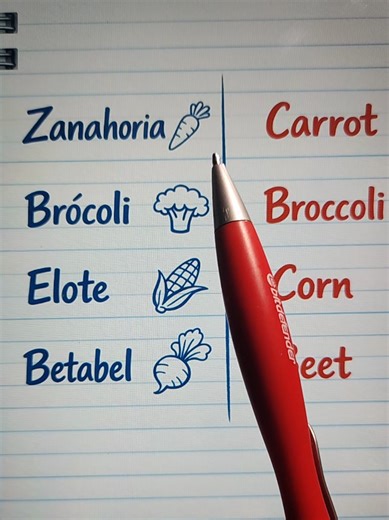 Zanahoria Carrot
Brócoli Broccoli
Elote Corn
Betabel eet
Bitdefender